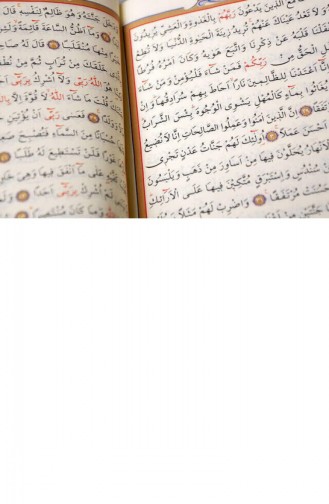 مَعَ الَّذٖينَ يَدْعُونَ رَبَّهُمْ بِالْغَدٰوةِ وَالْعَشِيِّ يُرٖيدُونَ
وَلَا تَعْدُ عَيْنَاكَ عَنْهُمْ تُرٖيدُ زٖينَةَ الْحَيٰوةِ الدُّنْيَا وَلَا تُطِعْ
قَلْبَهُ عَنْ ذِكْرِنَا وَاتَّبَعَ هَوٰيهُ وَكَانَ اَمْرُهُ فُرُطًا
الْحَقُّ مِنْ رَبِّكُمْ فَمَنْ شَاءَ فَلْيُؤْمِنْ وَمَنْ شَاءَ
اِنَّا اَعْتَدْنَا لِلظَّالِمٖينَ نَارًا اَحَاطَ بِهِمْ سُرَادِقُهَا وَاِنْ
بِمَاءٍ كَالْمُهْلِ يَشْوِى الْوُجُوهَ بِئْسَ الشَّرَابُ
اِنَّ الَّذٖينَ اٰمَنُوا وَعَمِلُوا الصَّالِحَاتِ اِنَّا لَا نُضٖيعُ
اَحْسَنَ عَمَلًا اُولٰئِكَ لَهُمْ جَنَّاتُ عَدْنٍ تَجْرٖى
الْاَنْهَارُ يُحَلَّوْنَ فٖيهَا مِنْ اَسَاوِرَ مِنْ ذَهَبٍ وَيَلْبَسُونَ
سُنْدُسٍ وَاِسْتَبْرَقٍ مُتَّكِـٖٔينَ فٖيهَا عَلَى الْاَرَائِكِ
مُرْتَفَقًا وَاضْرِبْ لَهُمْ مَثَلًا
جَنَّتَهُ وَهُوَ ظَالِمٌ لِنَفْسِهٖ قَالَ
وَمَا اَظُنُّ السَّاعَةَ قَائِمَةً وَلَئِنْ
مِنْهَا مُنْقَلَبًا قَالَ لَهُ
خَلَقَكَ مِنْ تُرَابٍ ثُمَّ مِنْ
هُوَ اللّٰهُ رَبّٖى وَلَا اُشْرِكُ بِرَبّٖى
قُلْتَ مَا شَاءَ اللّٰهُ لَا قُوَّةَ اِلَّا بِاللّٰهِ
فَعَسٰى رَبّٖى اَنْ يُؤْتِيَنِ
مِنَ السَّمَاءِ فَتُصْبِحَ
غَوْرًا فَلَنْ تَسْتَطٖيعَ لَهُ طَلَبًا
عَلٰى مَا اَنْفَقَ فٖيهَا وَهِيَ
بِرَبّٖى اَحَدًا
وَمَا كَانَ مُنْتَصِرًا